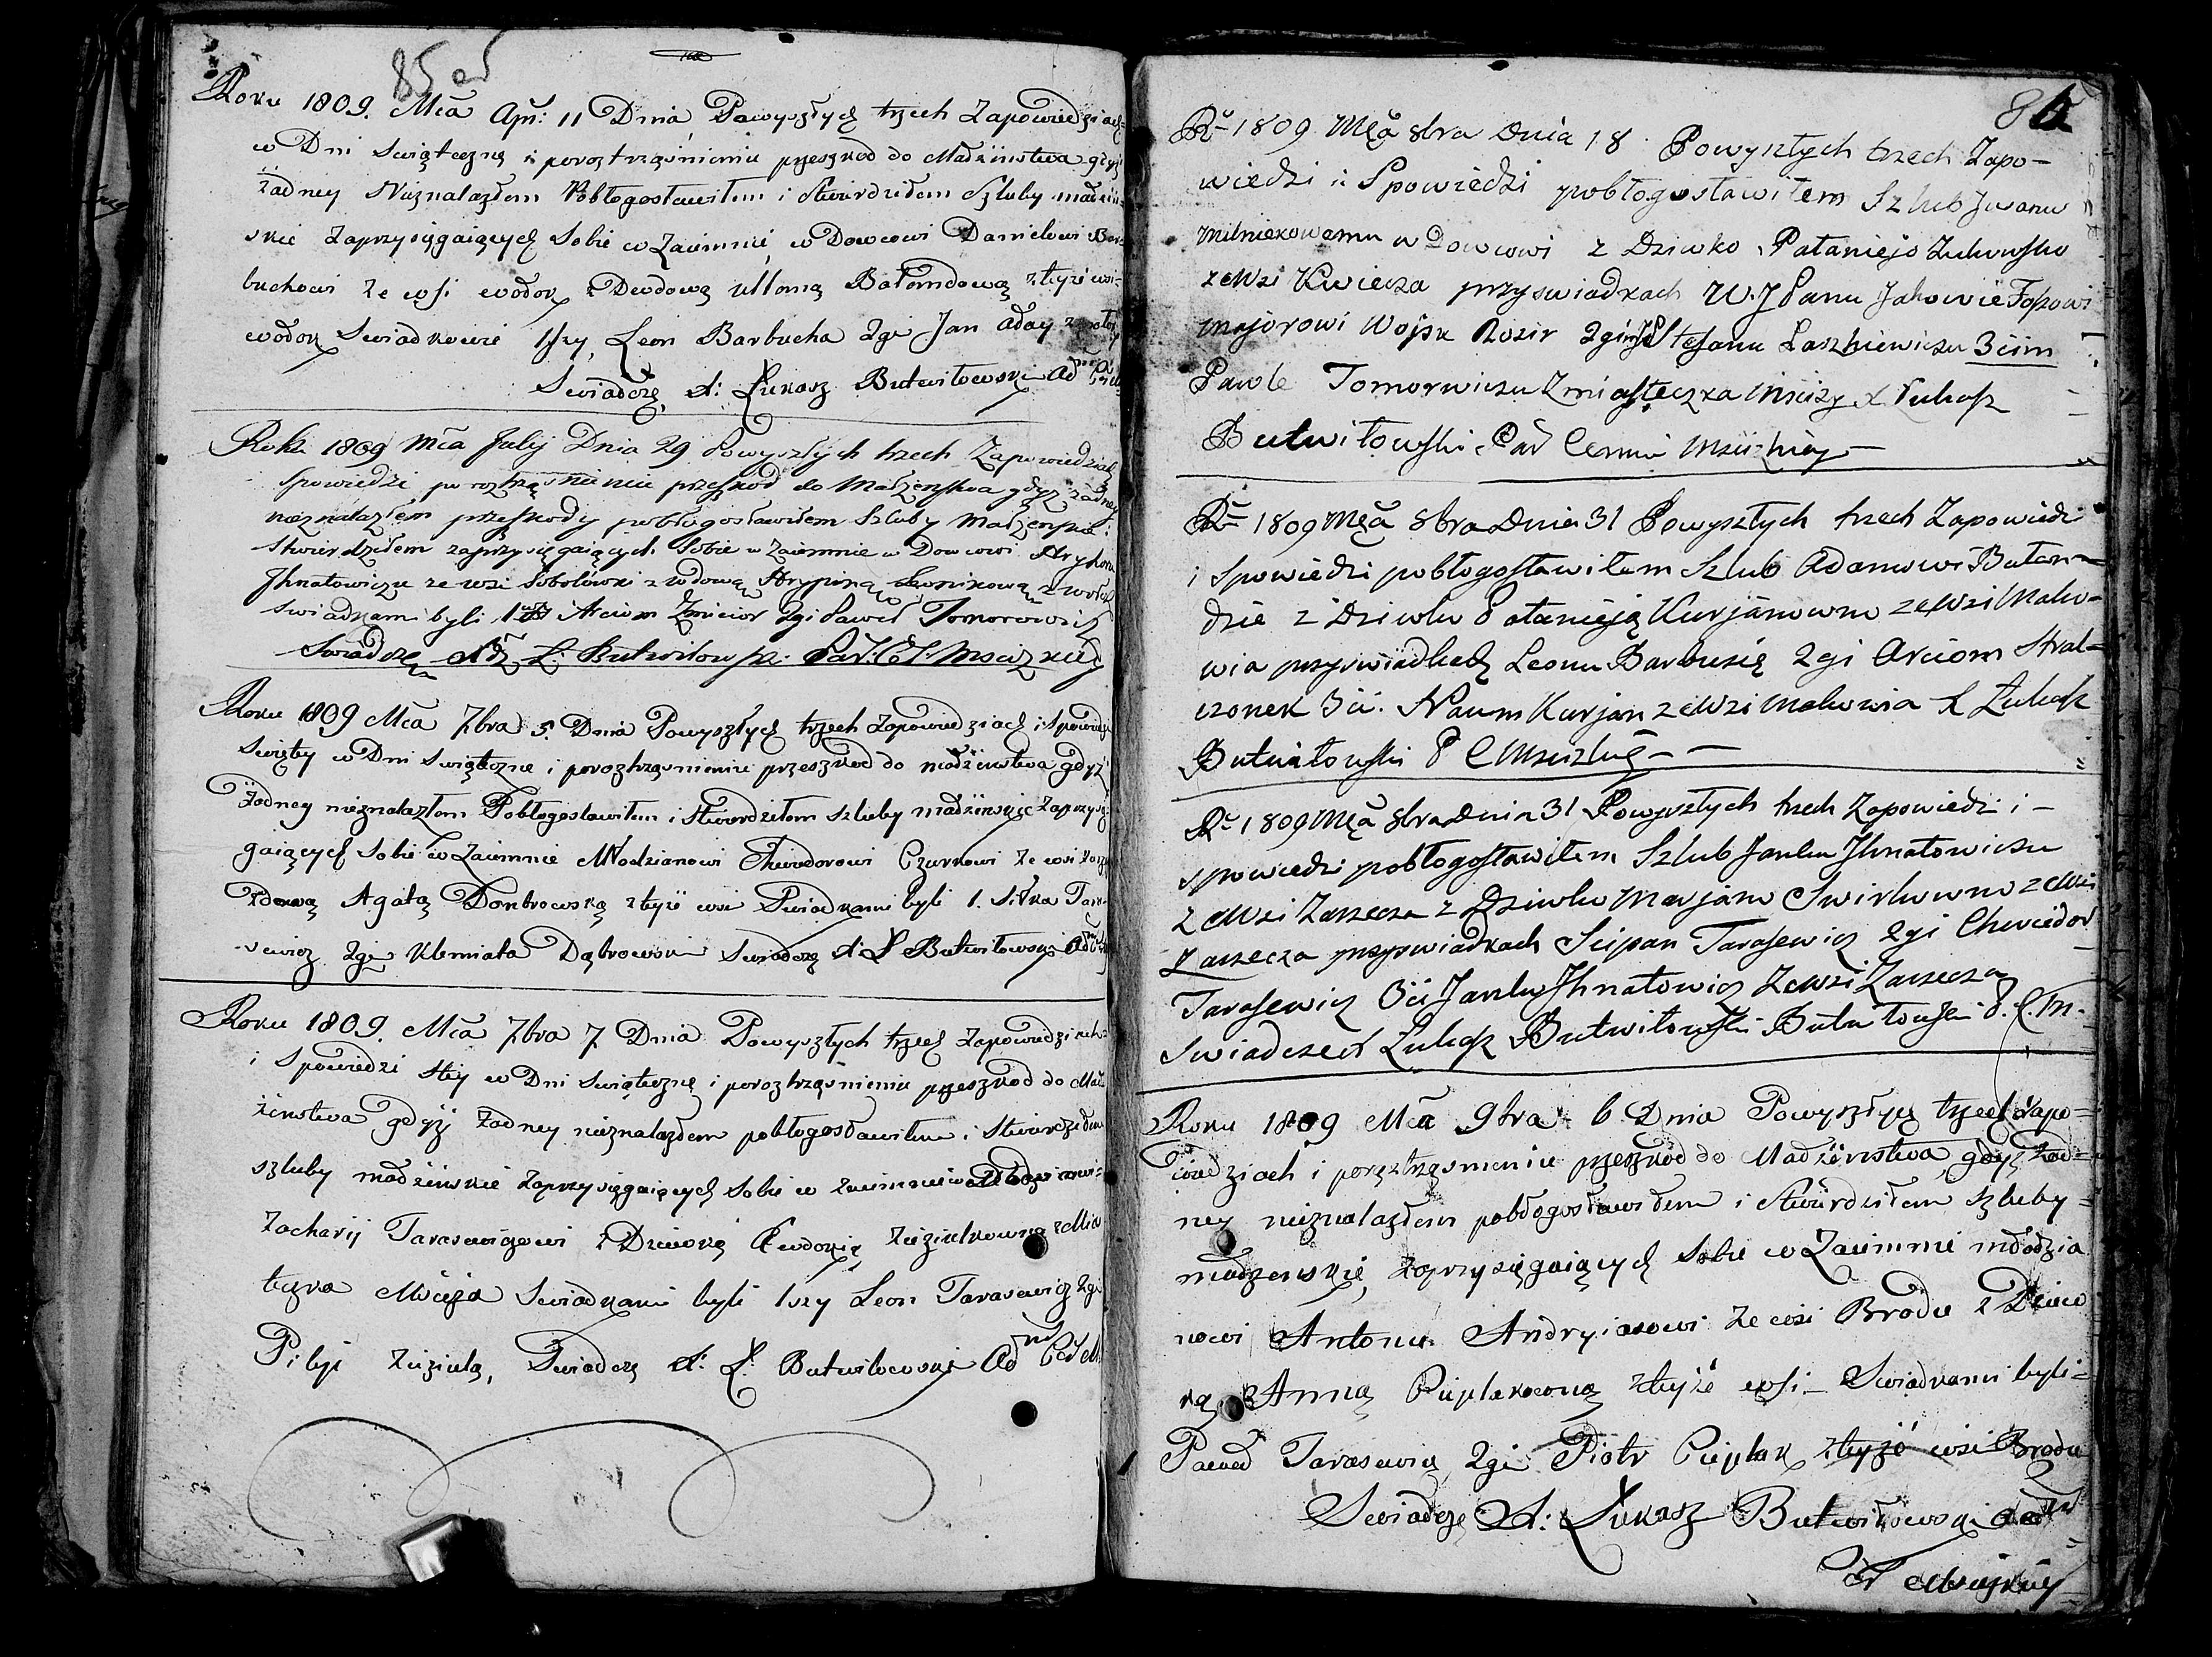 85 об
Roku 1809. Mca Apr: 11 Dnia Powyszłych trzech Zapowiedziach
w Dni Swiąteczne i poroztrząsnieniu przeszkod do Małżeństwa gdyż
żadney Nieznalazłem Pobłogosławiłem i Stwierdziłem Szluby małżeń-
skie zaprzysięgaiących Sobie w Zaiemnie w Dowcowi Danielowi Bar-
buchowi ze wsi wodox z Wdową Ullaną Bałondową zteyże wsi
wodox Swiadkowie 1szy Leon Barbucha 2gi Jan
Swiadczę X: Łukasz Butwiłowski Ad
Roku 1809 Mca Julij Dnia 29 Powyszłych trzech Zapowiedziach
Spowiedzi po roztrząsnieniu przeszkod do Małżenstwa gdyż żadney
nieznalazłem przeszkody pobłogosławiłem Szluby Małżenskie i
stwierdziłem zaprzysięgaiących Sobie w Zaiemnie w Dowcowi Hryhoru
Ihnatowiczu ze wsi Sobolówki z wdową Hrypiną
swiadkami byli 1szy Arciom Zmicior 2gi Paweł Tomorowicz
Swiadczę X L. Butwiłowski Par: Msciz
Roku 1809 Mca 7bra 5. Dnia Powyszłych trzech Zapowiedziach i Spowiedzi
Swięty w Dni Swiąteczne i poroztrząsnieniu przeszkod do małżeństwa gdyż
Żadney nieznalazłem Pobłogosławiłem i Stwierdziłem szluby małżenskie Zaprzysię-
gaiących Sobie w Zaiemnie Młodzianowi Chwiedorowi Czurkowi ze wsi
Agatą Dombrowską zteyże wsi Swiadkami byli 1. Tara-
sewicz 2gi Klemiata Dąbrowski Swiadczę X Ł Butwiłowski
Roku 1809. Mca 7bra 7 Dnia Powyszłych trzech Zapowiedziach
i Spowiedzi Stey w Dni Swiąteczne i poroztrząsnieniu przeszkod do Mał-
żenstwa gdyż żadney nieznalazłem pobłogosławiłem i Stwierdziłem
szluby małżenskie zaprzysięgaiących Sobie w zaiemnie
Zacharij Tarasewiczowi z Dziewką Ewdokią Ziuziulkowną z Mia
teczka Mściża Swiadkami byli 1szy Leon Tarasewicz 2gi
Pilip Ziuziula, Swiadczę X: Ł: Butwiłowski Ad
86
Rº 1809 Mca 8bra Dnia 18 Powyszłych trzech Zapo-
wiedzi i Spowiedzi pobłogosławiłem Szlub Jwanu
Milnikowemu wDowcowi z Dziwko Pałaniejo Zukowsko
zewsi Kwiecza przyswiadkach W. J Panu Jakowie
Majorowi Woysk Rosir 2gim Stefanu Laszkiewiczu 3cim
Pawle Tomorwiczu Zmiasteczka Msciży X Łukasz
Butwiłowski Par Cerm Msciżkiey
Rº 1809 Mca 8bra Dnia 31 Powyszłych trzech Zapowiedzi
i spowiedzi pobłogosławiłem Szlub Adamowi Bałan-
dzie z Dziwku Pałanieją Kurjanowno zewsi Mako-
wia przyswiadkach Leonu Barbusię 2gi Arciom Stral-
czonek 3ci. Naum Kurjan zewsi makowia X Łukasz
Butwiłowski P C Msciżkiey
Rº 1809 Mca 8bra Dnia 31 Powyszłych trzech Zapowiedzi i
spowiedzi pobłogosławiłem Szlub Janku Jhnatowiczu
zewsi Zarzecza z Dziwku Marjano Swirkowno zewsi
Zarzecza przyswiadkach Scipan Tarasewicz 2gi Chwiedor
Tarasewicz 3ci Janku Jhnatowicz zewsi Zarzecza
swiadcze X Łukasz Butwiłowski Butwiłowski P. C. M.
Roku 1809 Mca 9bra 6 Dnia Powyszłych trzech Zapo=
wiedziach i poroztrząsnieniu przeszkod do Małżenstwa, gdyż żad=
ney nieznalazłem pobłogosławiłem i Stwierdziłem Szluby=
małżenskie, zaprzysięgaiących Sobie w Zaiemnie młodzia
nowi Antonu Andryiasowi ze wsi Brodu z Dziew
ką Anną Cieplakową zteyże wsi Swiadkami byli=
Paweł Tarasewicz 2gi Piotr Cieplak zteyże wsi Brodu
Swiadczę X: Łukasz Butwiłowski